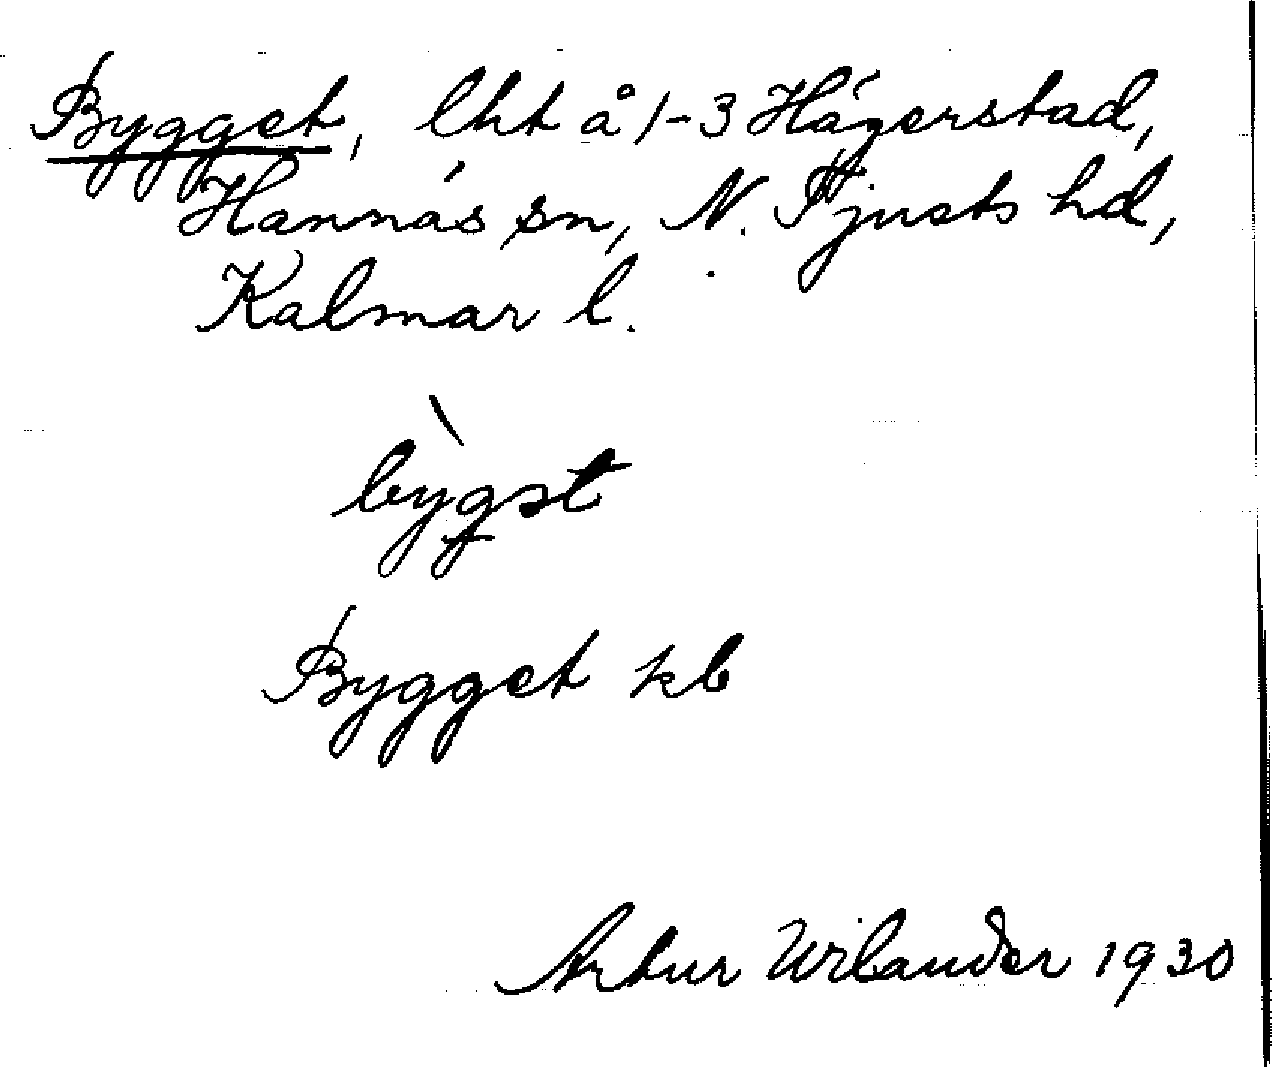 Bygget, lht å 1-3 Hägerstad,
Hannäs sn, N. Tjusts hd,
Kalmar l.
bỳgət
Bygget kb
Artur Wilander 1930